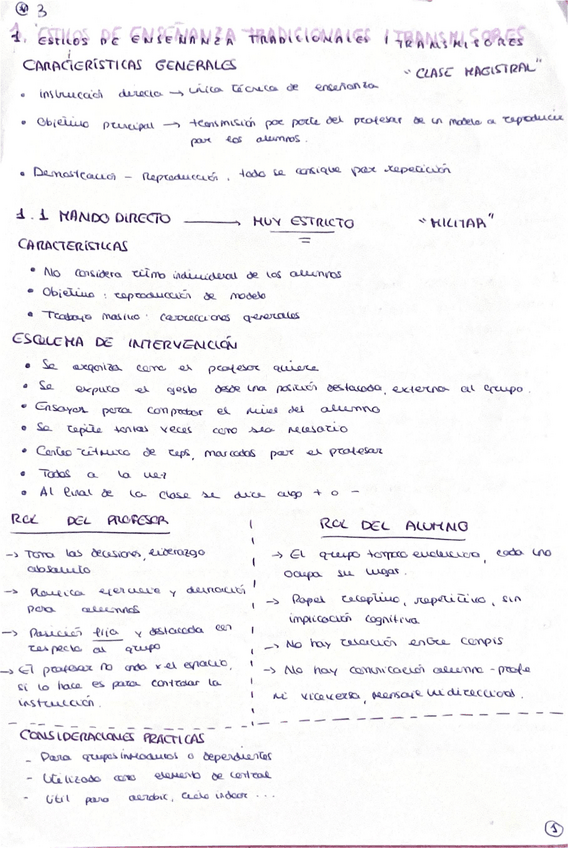 3
1. ESTILOS DE ENSEÑANZA TRADICIONALES / TRANSMISORES
CARACTERÍSTICAS GENERALES "CLASE MAGISTRAL"
• Instrucción directa → única técnica de enseñanza
• Objetivo principal → transmisión por parte del profesor de un modelo a reproducir
por los alumnos.
• Demostración - Reproducción, todo se consigue por repetición
1.1 MANDO DIRECTO → MUY ESTRICTO "MILITAR"
CARACTERÍSTICAS
• No considera ritmo individual de los alumnos
• Objetivo: reproducción de modelo
• Trabajo masivo: correcciones generales
ESQUEMA DE INTERVENCIÓN
• Se organiza como el profesor quiere
• Se explica el gesto desde una posición destacada, externa al grupo.
• Ensayos para comprobar el nivel del alumno
• Se repite tantas veces como sea necesario
• Conteo rítmico de reps, marcados por el profesor
• Todos a la vez
• Al final de la clase se dice algo + o -
ROL DEL PROFESOR
→ Toma las decisiones, liderazgo
absoluto
→ Planifica ejercicio y
para alumnos
→ Posición fija y destacada con
respecto al grupo
→ El profesor no anda x el espacio,
si lo hace es para controlar la
instrucción.
ROL DEL ALUMNO
→ El grupo evoluciona, cada uno
ocupa su lugar.
→ Papel receptivo, repetitivo, sin
implicación cognitiva
→ No hay relación entre compis
→ No hay comunicación alumno-profe
ni viceversa, mensaje unidireccional.
CONSIDERACIONES PRÁCTICAS
- Para grupos inmaduros o dependientes
- Utilizado como elemento de control
- Útil para aerobic, ciclo indoor ...
1